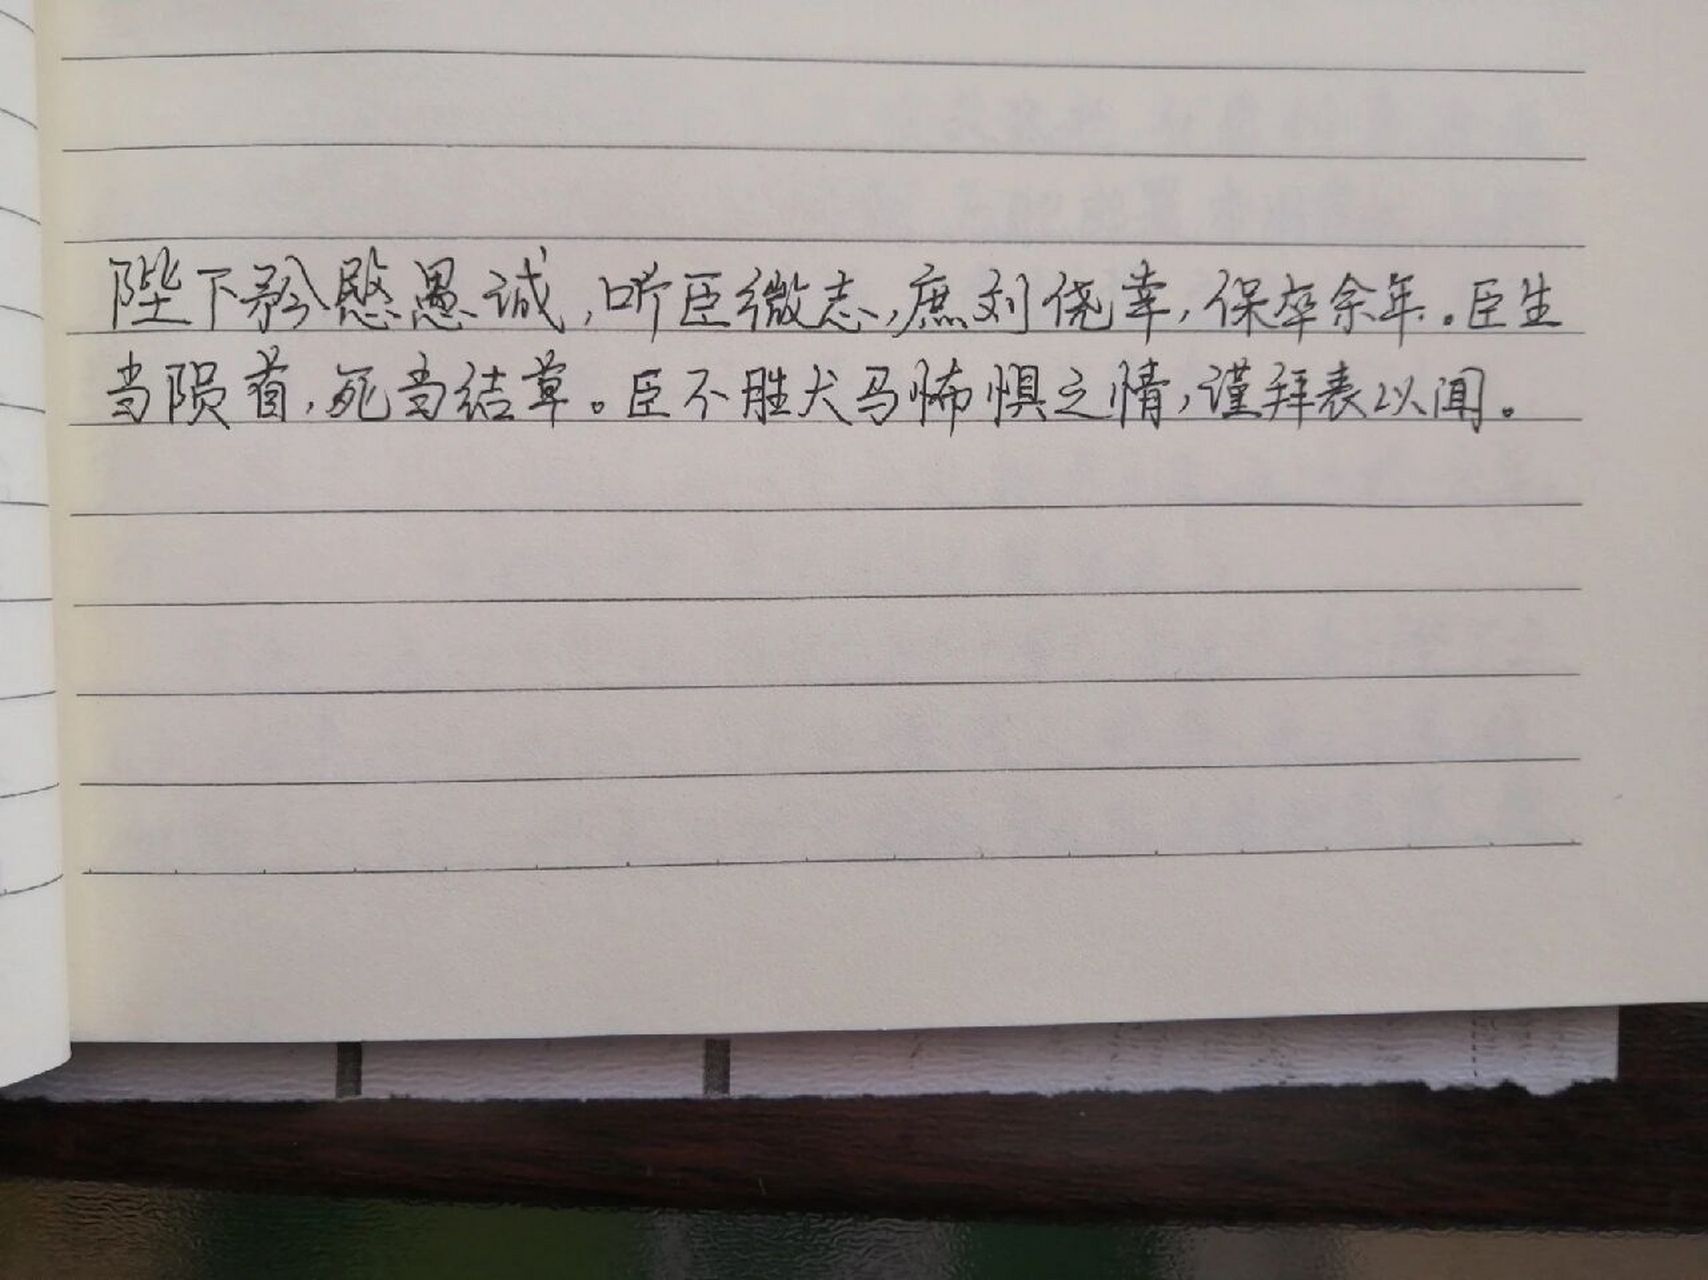 陛下矜愍愚诚,听臣微志,庶刘侥幸,保卒余年。臣生
当陨首,死当结草。臣不胜犬马怖惧之情,谨拜表以闻。